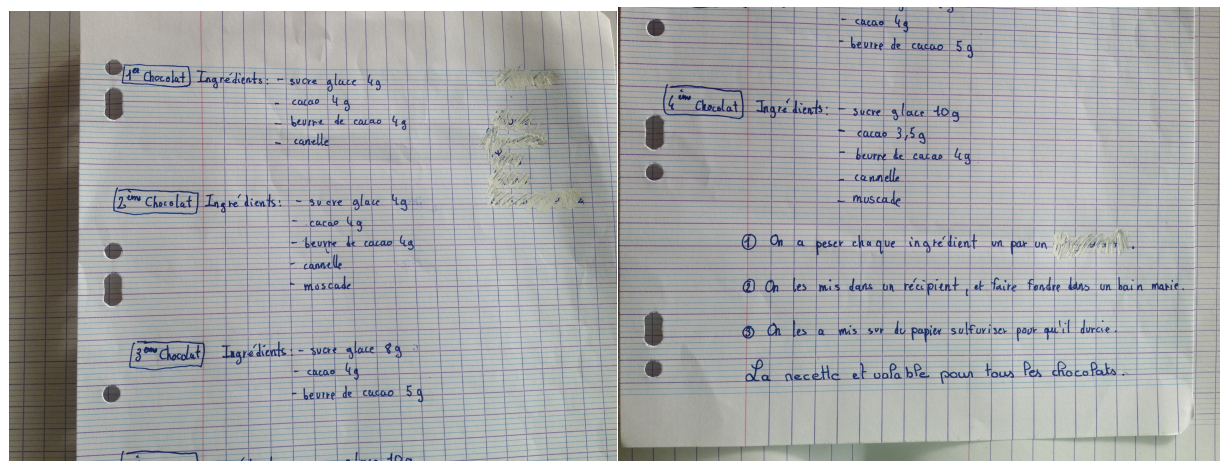 1er Chocolat Ingrédients : - sucre glace 4g
- cacao 4g
- beurre de cacao 4g
- canelle
2ème Chocolat Ingrédients : - sucre glace 4g
- cacao 4g
- beurre de cacao 4g
- cannelle
- moscade
3ème Chocolat Ingrédients : - sucre glace 8g
- cacao 4g
- beurre de cacao 5g
- cacao 4g
- beurre de cacao 5g
4ème Chocolat Ingrédients : - sucre glace 10g
- cacao 3,5g
- beurre de cacao 4g
- cannelle
- muscade
① On a peser chaque ingrédient un par un .
② On les mis dans un récipient, et faire fondre dans un bain marie.
③ On les a mis sur du papier sulfuriser pour qu'il durcie.
La recette et valable pour tous les chocolats.